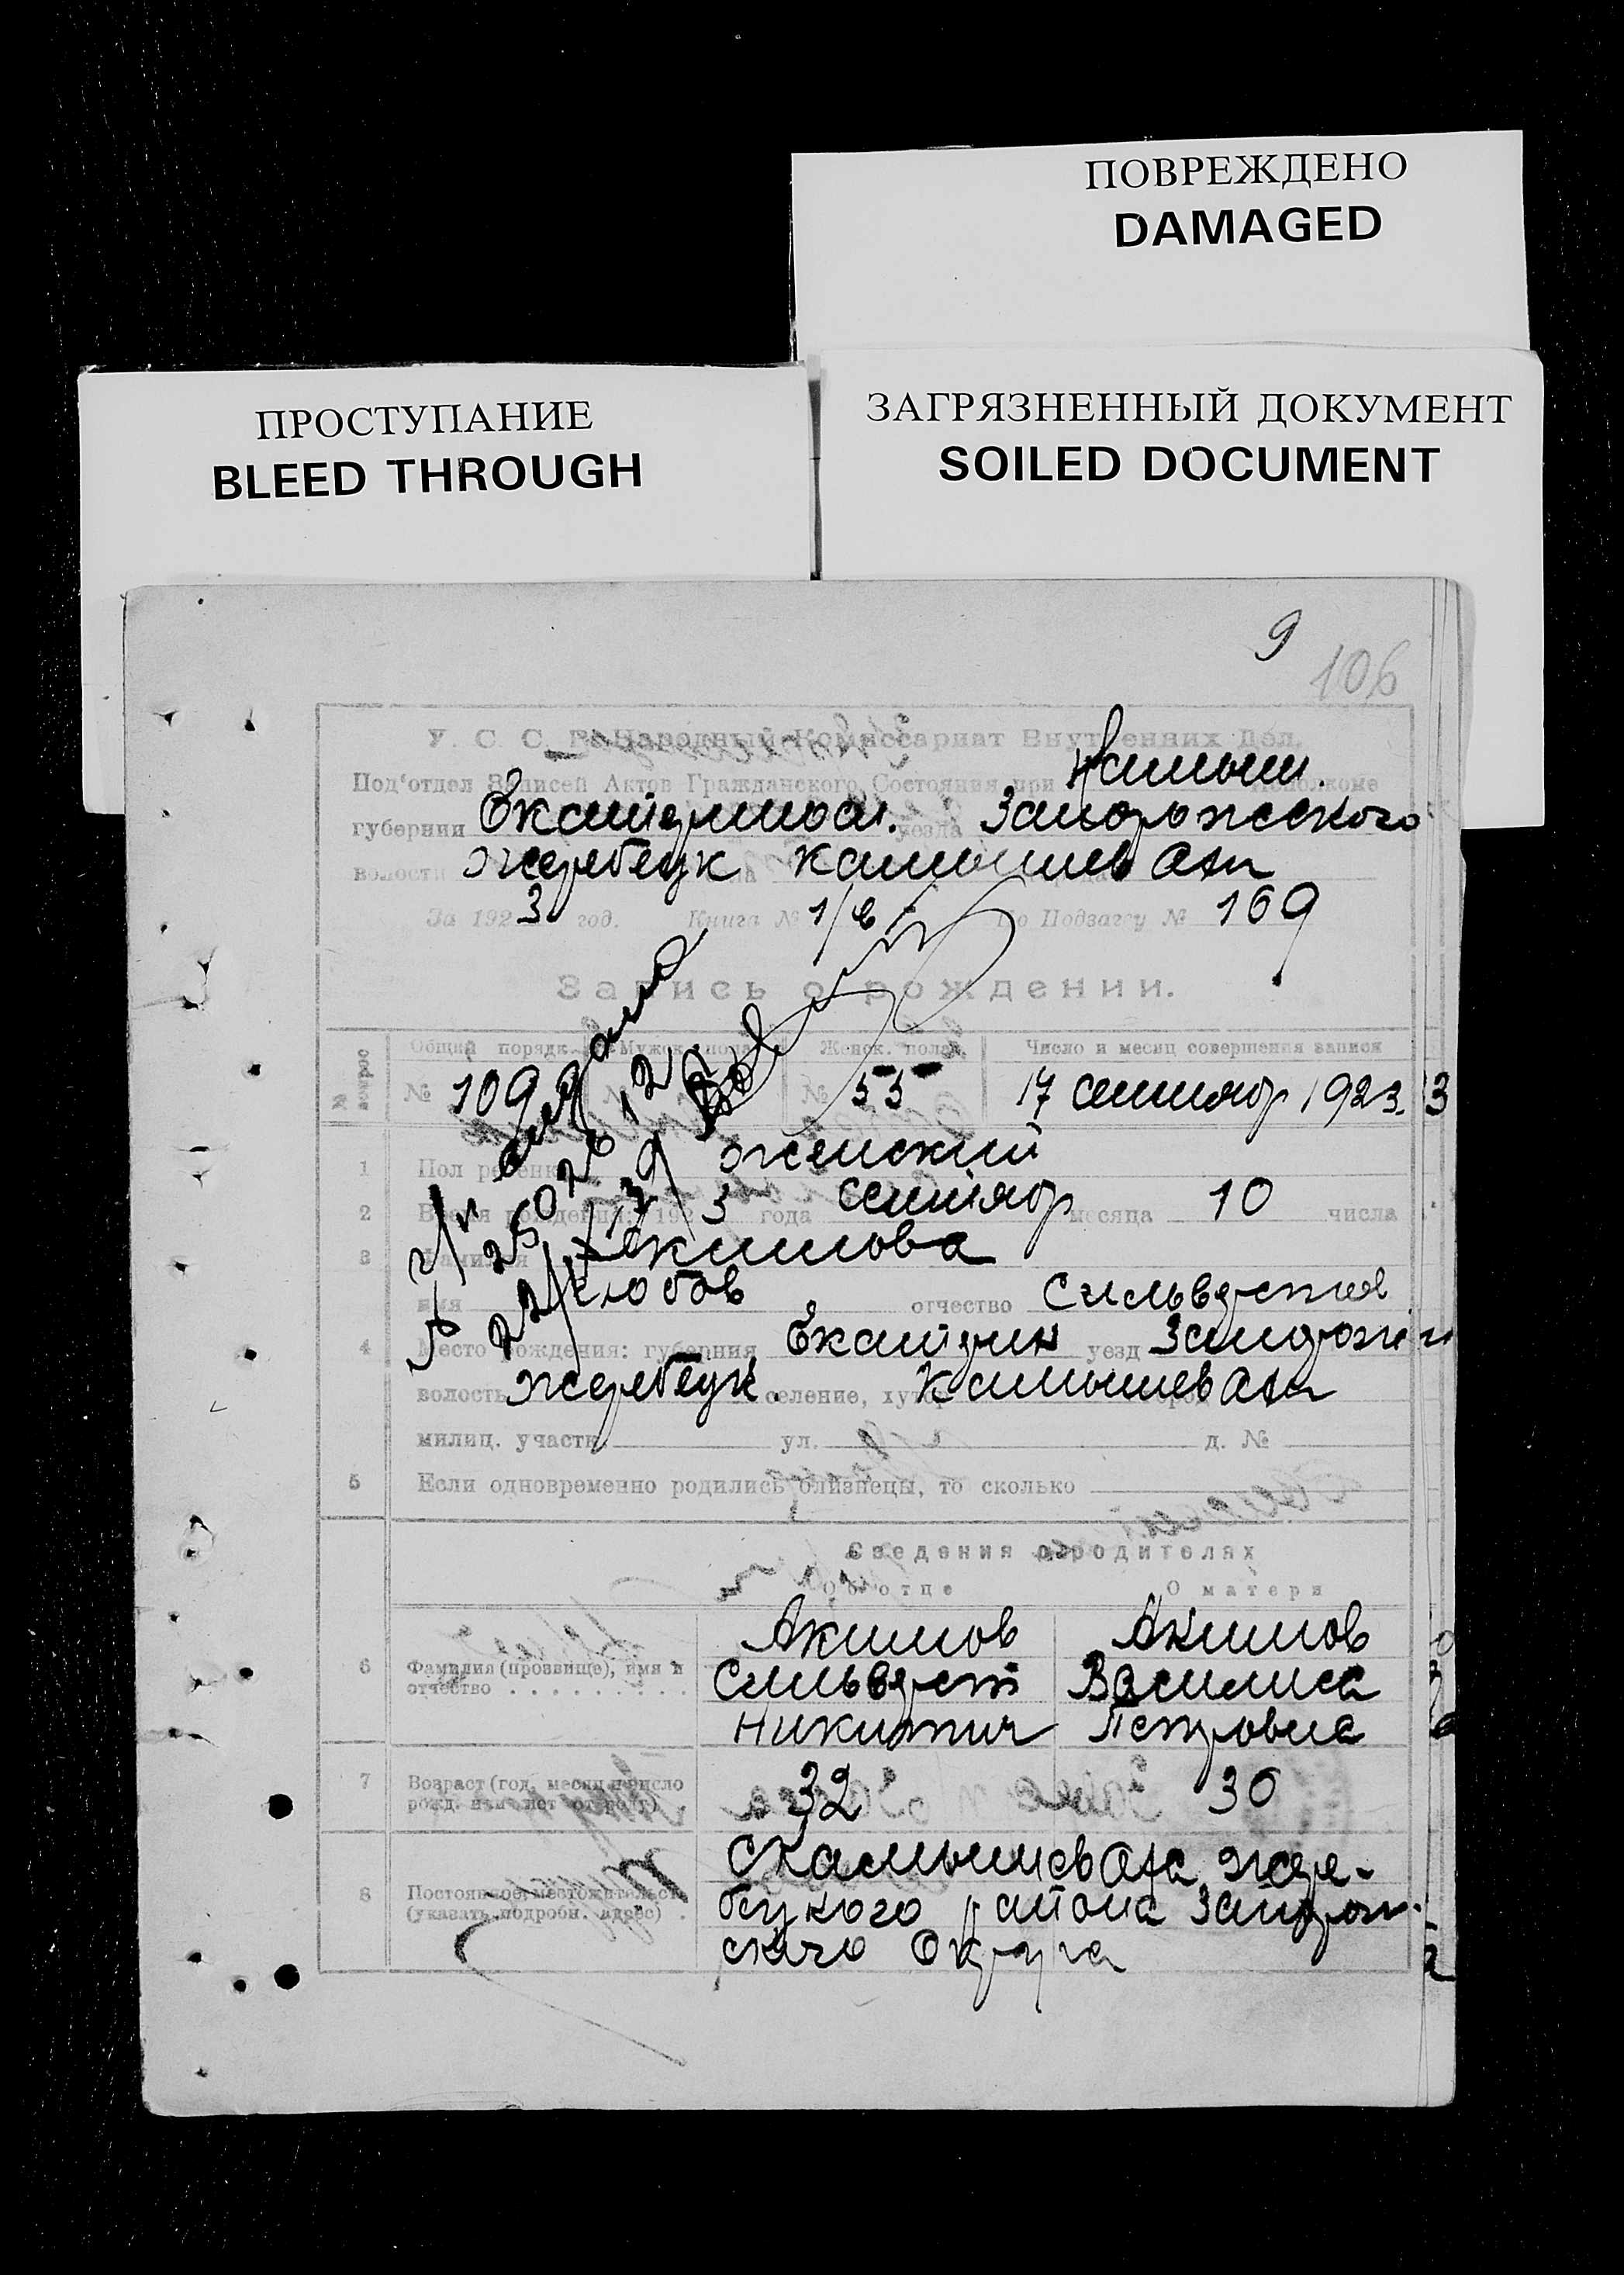 ПОВРЕЖДЕНО
DAMAGED
ПРОСТУПАНИЕ
BLEED THROUGH
ЗАГРЯЗНЕННЫЙ ДОКУМЕНТ
SOILED DOCUMENT
9
106
У. С. С. Р. Народный Комиссариат Внутренних Дел.
Под'отдел Записей Актов Гражданского Состояния при Камыш. Исполкоме
губернии Екатеринос. уезда Запорожского
волости Жеребецк Камышевах
За 1923 год. Книга № 1/в По Подзагсу № 169
Запись о рождении.
Общий порядк. Мужск. пола Женск. пола Число и месяц совершения записи
№ 109 № № 55 17 сентябр 1923.
1 Пол ребенка женский
2 Время рождения: 1923 года сентябр месяца 10 числа
3 Фамилия Акимова
имя Любовь отчество Сильвестров
4 Место рождения: губерния Екатерин уезд Запорож
волость Жеребецк. селение, хутор Камышевах
милиц. участк. ул. д. №
5 Если одновременно родились близнецы, то сколько
Сведения о родителях
Об отце О матери
Акимов Акимов
6 Фамилия (прозвище), имя и отчество Сильвестр Василиса
Никитич Петровна
7 Возраст (год, месяц и число рожд. или лет от роду) 32 30
С Камышеваха Жере-
8 Постоянное местожительст. (указать подробн. адрес) бецкого района Запорож.
ского Округа